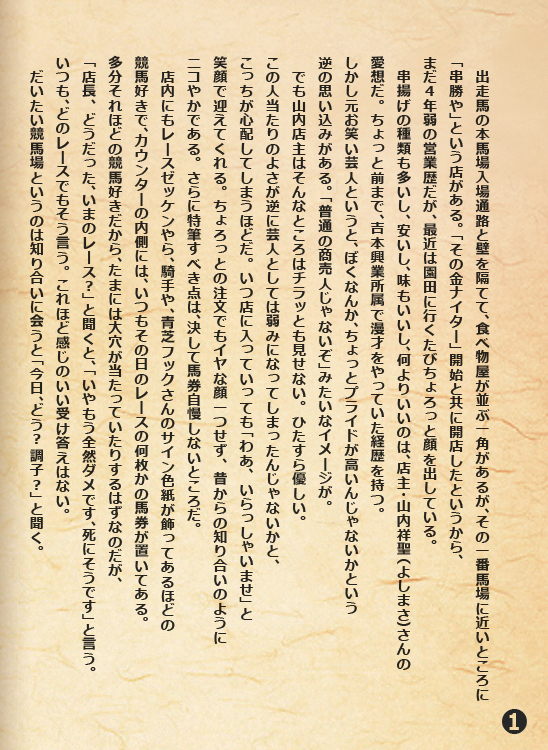 出走馬の本馬場入場通路と壁を隔てて、食べ物屋が並ぶ一角があるが、その一番馬場に近いところに
「串勝や」という店がある。「その金ナイター」開始と共に開店したというから、
まだ4年弱の営業歴だが、最近は園田に行くたびちょろっと顔を出している。
串揚げの種類も多いし、安いし、味もいいし、何よりいいのは、店主・山内祥聖(よしまさ)さんの
愛想だ。ちょっと前まで、吉本興業所属で漫才をやっていた経歴を持つ。
しかし元お笑い芸人というと、ぼくなんか、ちょっとプライドが高いんじゃないかという
逆の思い込みがある。「普通の商売人じゃないぞ」みたいなイメージが。
でも山内店主はそんなところはチラッとも見せない。ひたすら優しい。
この人当たりのよさが逆に芸人としては弱みになってしまったんじゃないかと、
こっちが心配してしまうほどだ。いつ店に入っていっても「わあ、いらっしゃいませ」と
笑顔で迎えてくれる。ちょろっとの注文でもイヤな顔一つせず、昔からの知り合いのように
ニコやかである。さらに特筆すべき点は、決して馬券自慢しないところだ。
店内にもレースゼッケンやら、騎手や、青芝フックさんのサイン色紙が飾ってあるほどの
競馬好きで、カウンターの内側には、いつもその日のレースの何枚かの馬券が置いてある。
多分それほどの競馬好きだから、たまには大穴が当たっていたりするはずなのだが、
「店長、どうだった、いまのレース?」と聞くと、「いやもう全然ダメです、死にそうです」と言う。
いつも、どのレースでもそう言う。これほど感じのいい受け答えはない。
だいたい競馬場というのは知り合いに会うと「今日、どう?調子?」と聞く。
1